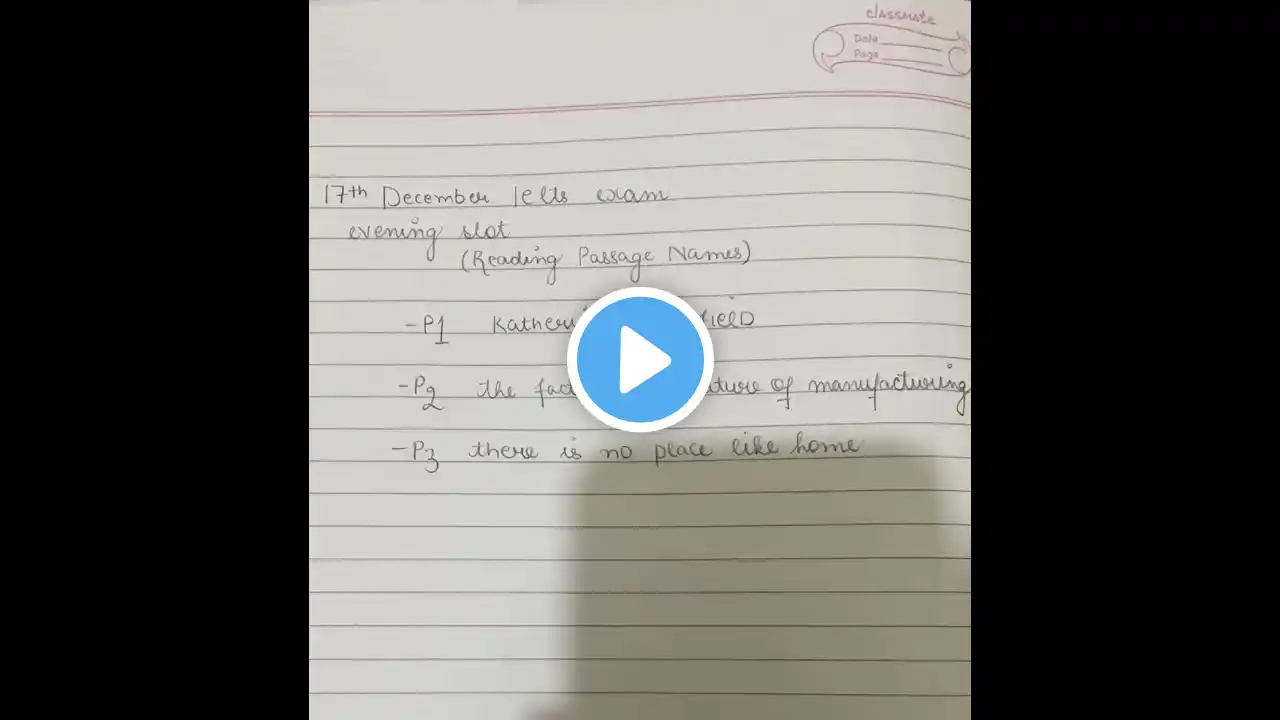 classmate
Date
Page
17th December Ielts exam
evening slot
(Reading Passage Names)
-P1
-P2 the of manufacturing
-P3 there is no place like home